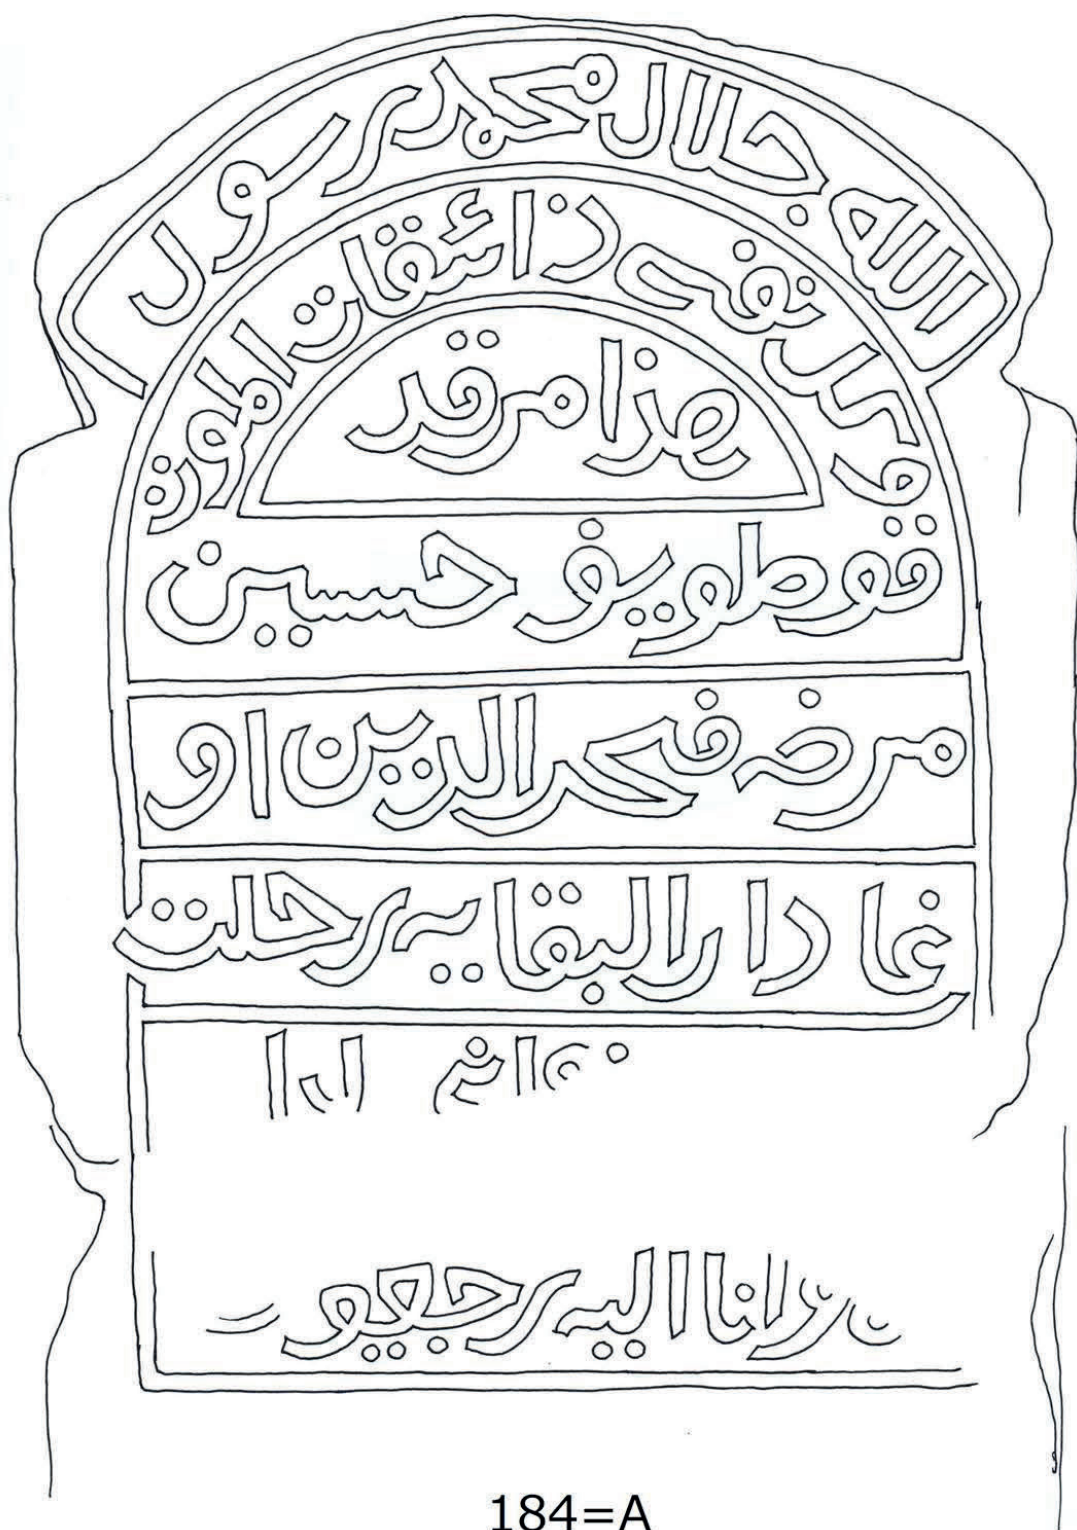 الله جلال محمد رسول
و كل نفس ذائقات الموة
هذا مرقد
قوطويف حسين
مرضه فحر الدين او
غا دار البقا يه رحلت
وانا اليه رجعو
184=A